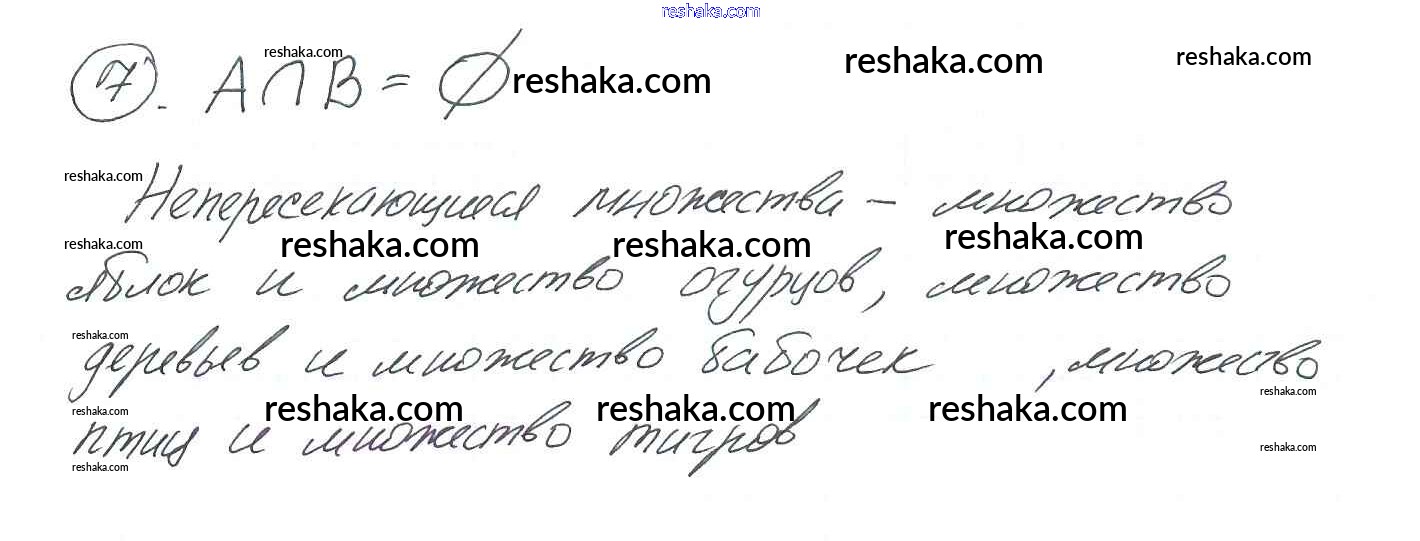 reshaka.com
7. A ∩ B = ∅
reshaka.com reshaka.com reshaka.com reshaka.com
reshaka.com
Непересекающиеся множества – множество
reshaka.com reshaka.com reshaka.com reshaka.com
яблок и множество огурцов, множество
reshaka.com
деревьев и множество бабочек , множество
reshaka.com
reshaka.com reshaka.com reshaka.com reshaka.com
птиц и множество тигров
reshaka.com
reshaka.com